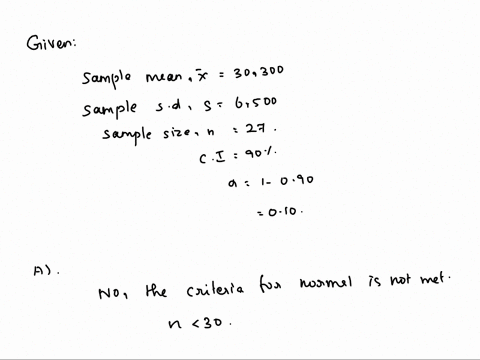 Given:
Sample mean, x̄ = 30,300
Sample s.d, s = 6,500
Sample size, n = 27.
C.I = 90%.
α = 1- 0.90
= 0.10.
A).
No, the criteria for normal is not met.
n < 30.